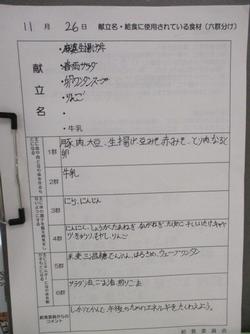 11月 26日 献立名・給食に使用されている食材(六群分け)
献立名
・麻婆生揚げ丼
・春雨サラダ
・卵ワンタンスープ
・りんご
・
・牛乳
1群
豚肉、大豆、生揚げ、豆みそ、赤みそ、とり肉、なると
卵
2群
牛乳
3群
にら、にんじん
4群
にんにく、しょうが、たまねぎ、ながねぎ、たけのこ、干ししいたけ、キャベツ
きゅうり、もやし、りんご
5群
米、麦、三温糖、でんぷん、はるさめ、ウェーブワンタン
6群
サラダ油、ごま油、煎りごま
給食委員からの
コメント
しっかりかんで、午後のためのエネルギーをたくわえよう。
給食委員会